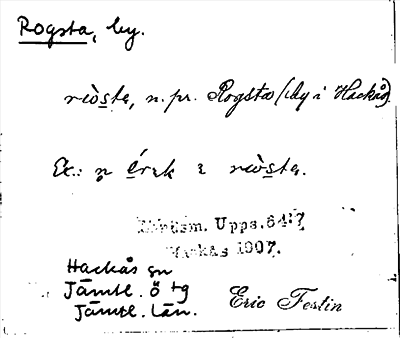 Rogsta, by.
riòsta, n.pr. Rogsta (by i Hackås).
Ex.: n̥ érɩk ɩ riòsta.
Upps. 64:7
Hackås 1907.
Hackås sn
Jämtl. ö tg
Jämtl. län.
Eric Festin